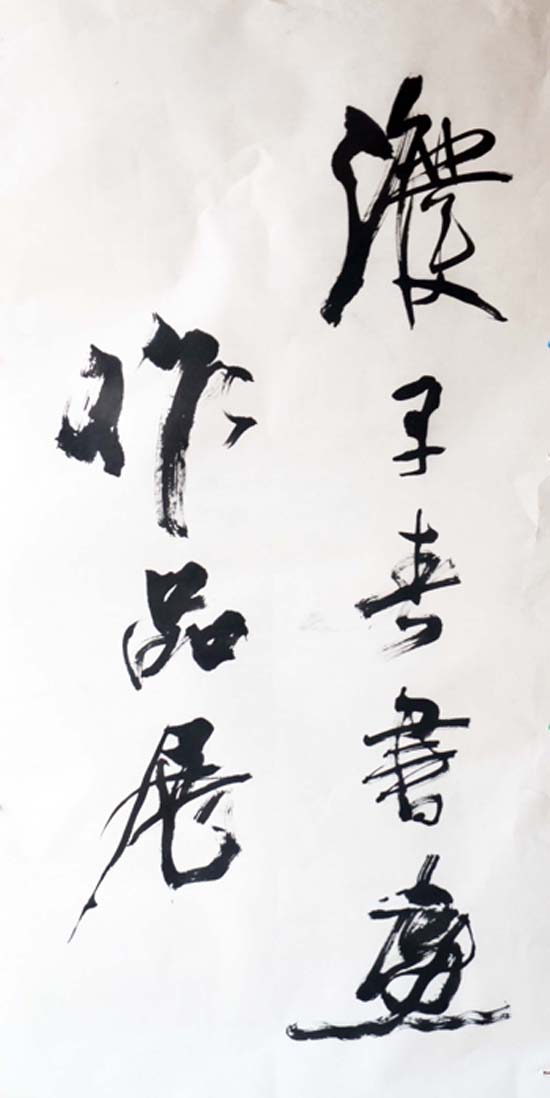 子春書畫
作品展